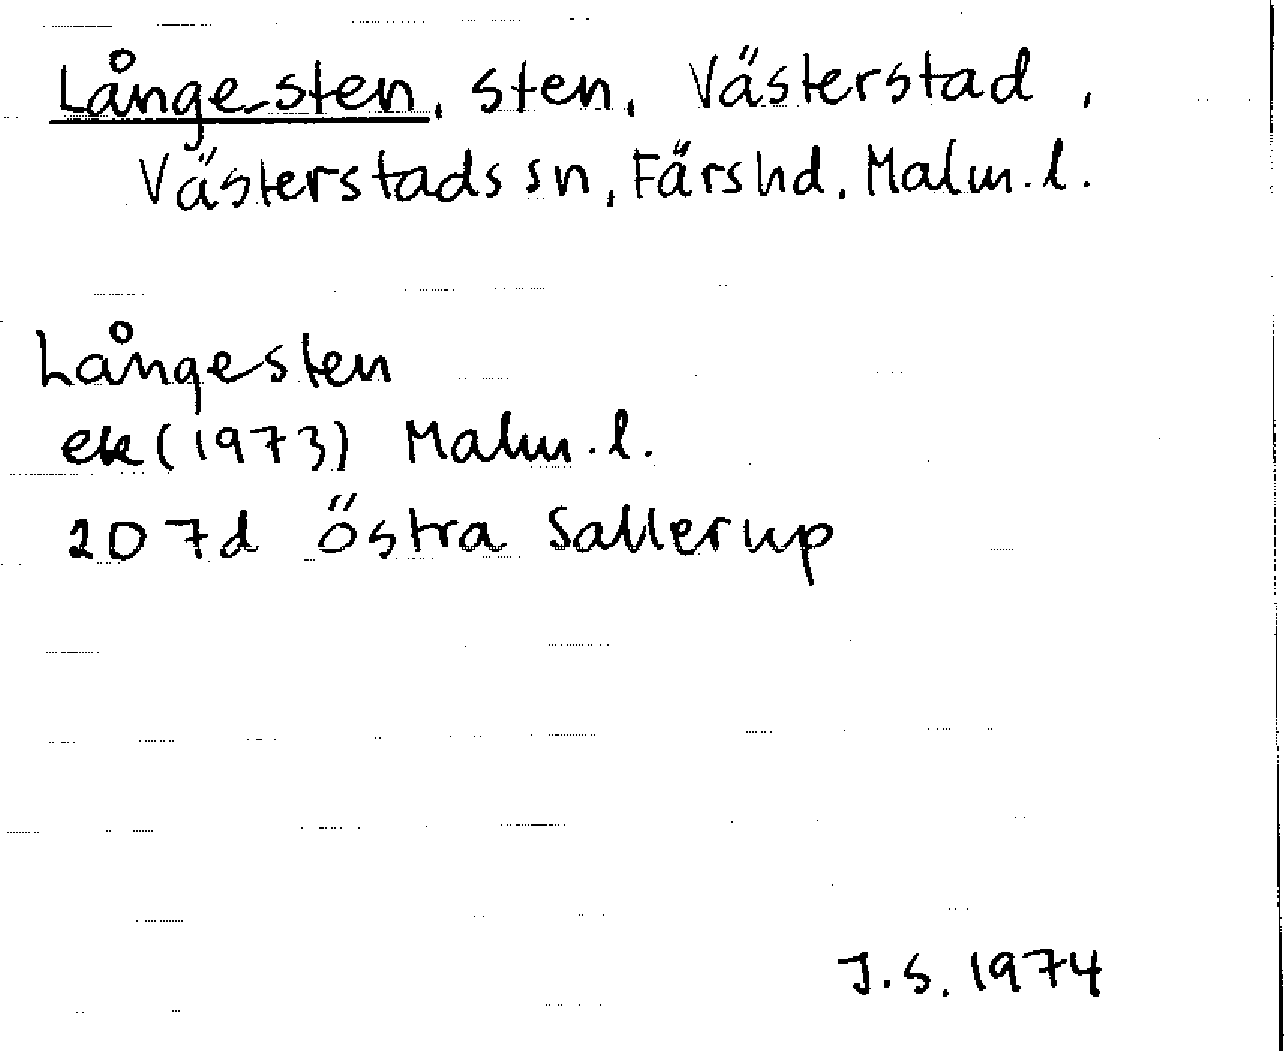 Långesten, sten, Västerstad,
Västerstads sn, Färs hd, Malm. l.
Långesten
ek (1973) Malm. l.
2D 7d Östra Sallerup
J.S. 1974